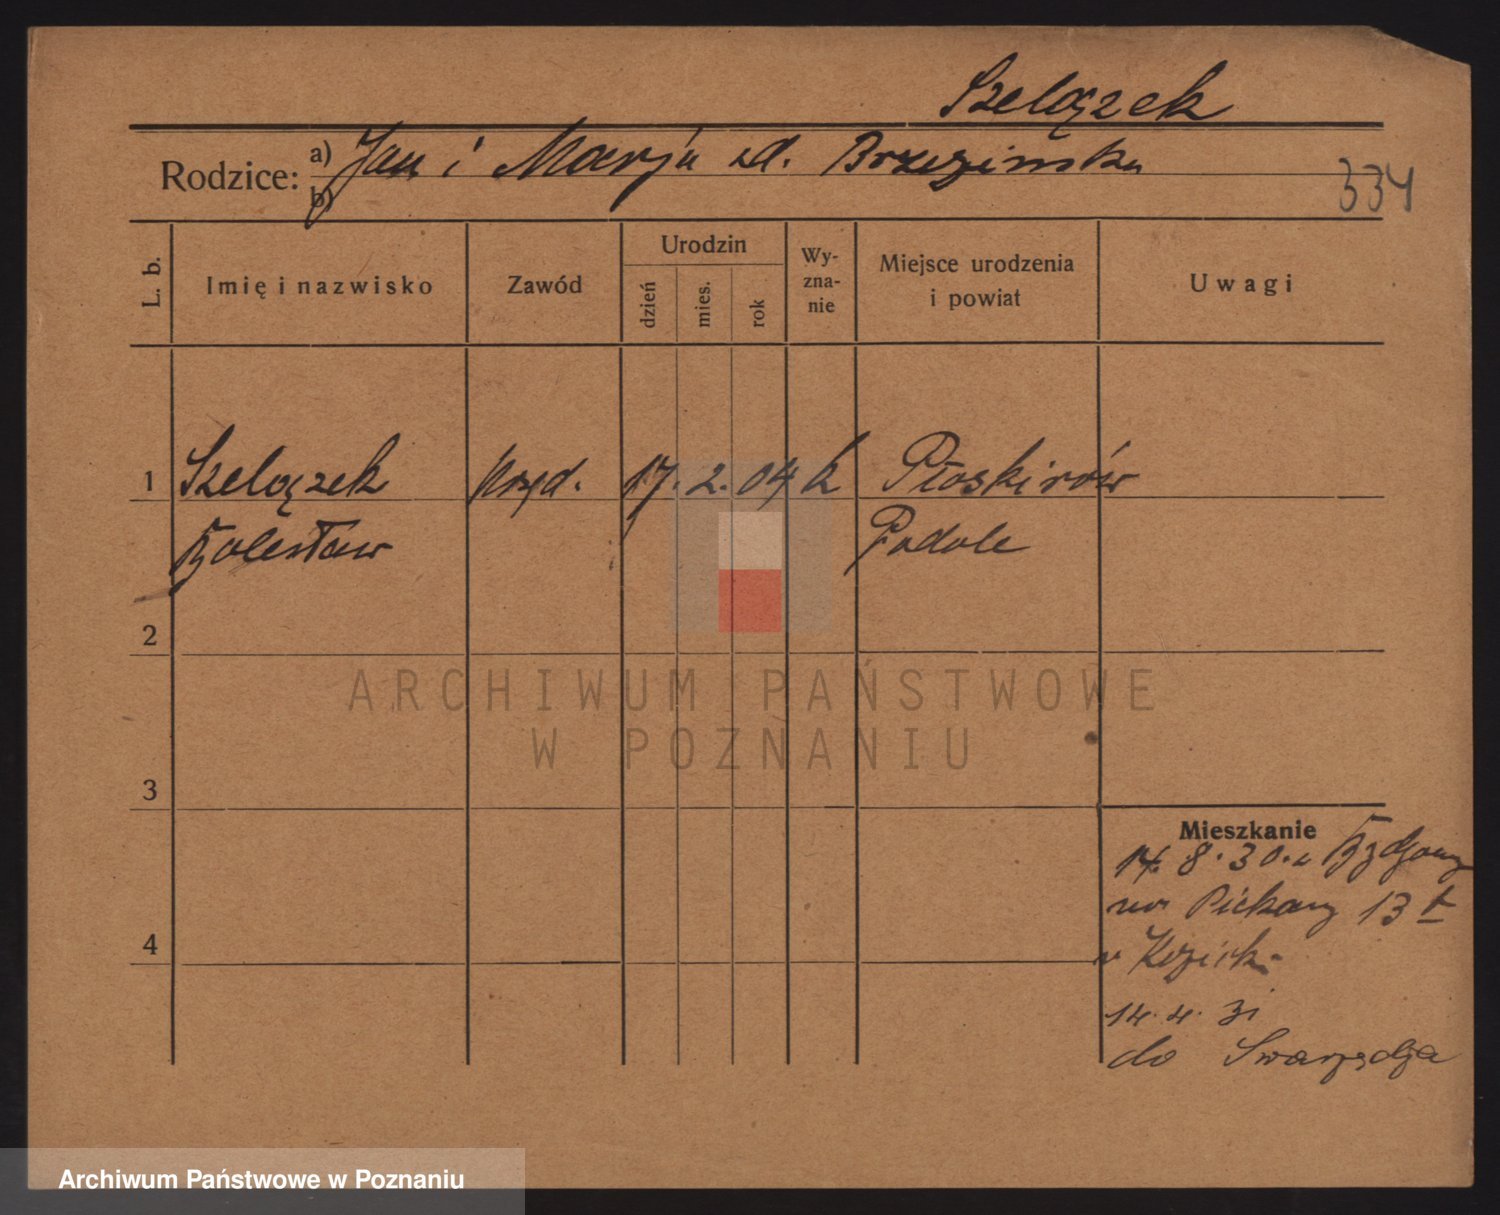 Szelązek
Rodzice: a) Jan i Marja zd. Brzezińska
b)
334
L. b.
Imię i nazwisko
Zawód
Urodzin
dzień
mies.
rok
Wy-
zna-
nie
Miejsce urodzenia
i powiat
Uwagi
1 Szelązek urzęd. 17. 2. 04 k Płoskirów
Bolesław Podole
2
3
4
Mieszkanie
14. 8. 30. z Bydgoszcz
Piekary 13
14. 4. 31
do Swarzędza
ARCHIWUM PAŃSTWOWE
W POZNANIU
Archiwum Państwowe w Poznaniu